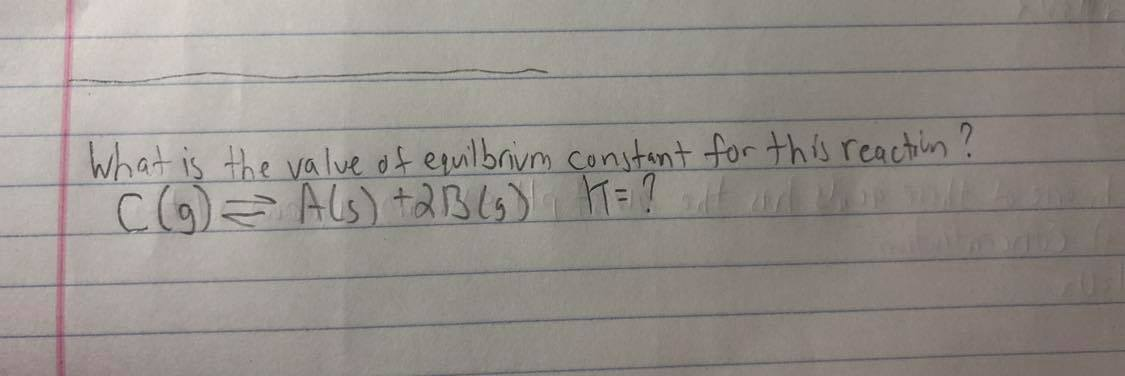 What is the value of equilbrium constant for this reaction?
C(g) ⇌ A(s) + 2B(g) K = ?